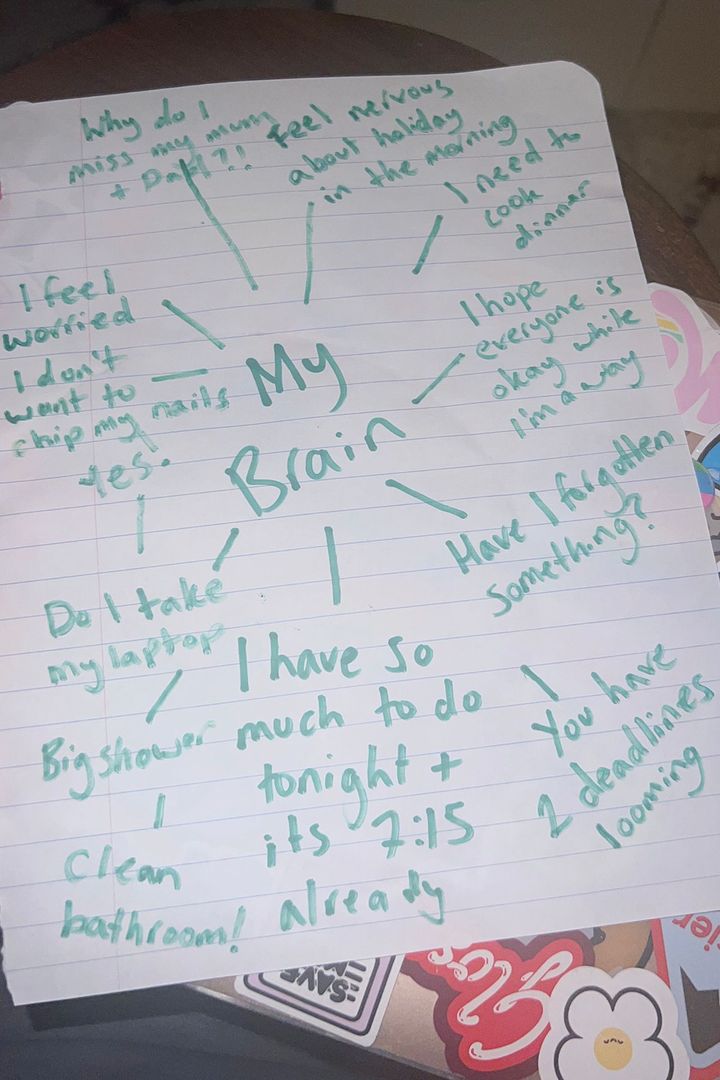 Why do I
miss my mum
+ Dad?!!
Feel nervous
about holiday
in the morning
I need to
cook
dinner
I feel
worried
I don't
want to
chip my nails
yes.
My
Brain
I hope
everyone is
okay while
I'm away
Have I forgotten
something?
Do I take
my laptop
Big shower
Clean
bathroom!
I have so
much to do
tonight +
its 7:15
already
You have
2 deadlines
looming
SAVE